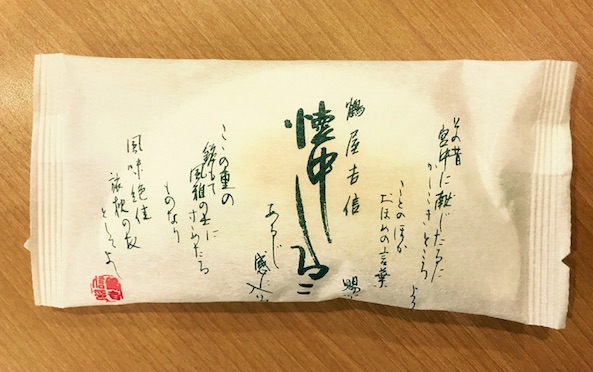 その昔
宮中に献じたるに
かしこきところより
ことのほか
おほめの言葉
賜
鶴屋吉信
懐中しるこ
あるじ
感じ入
ここの重の
風雅の士に
ものなり
風味絶佳
旅枕の友
としてよし